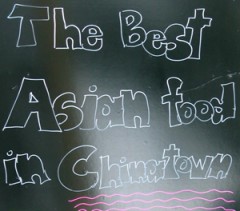 The Best
Asian food
in Chinatown